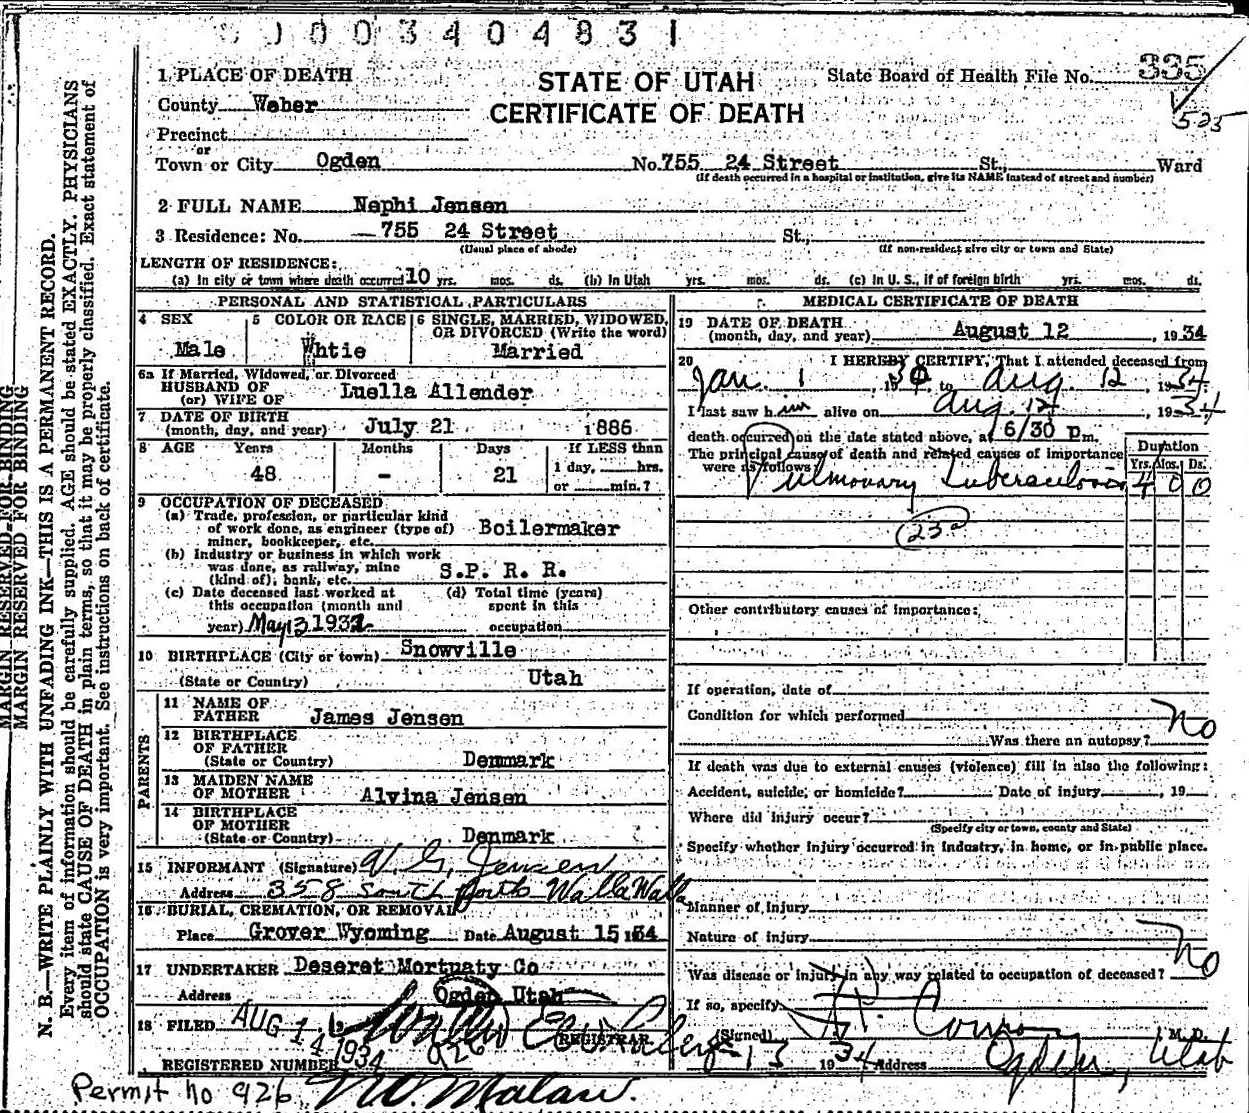 0003404831
1 PLACE OF DEATH
STATE OF UTAH
CERTIFICATE OF DEATH
State Board of Health File No. 335
525
County Weber
Precinct
or
Town or City Ogden No. 755 24 Street St., Ward
(If death occurred in a hospital or institution, give its NAME instead of street and number)
2 FULL NAME Nephi Jensen
3 Residence: No. 755 24 Street St.,
(Usual place of abode) (If non-resident give city or town and State)
LENGTH OF RESIDENCE:
(a) In city or town where death occurred 10 yrs. mos. ds. (b) In Utah yrs. mos. ds. (c) In U. S., if of foreign birth yrs. mos. ds.
PERSONAL AND STATISTICAL PARTICULARS
4 SEX
Male
5 COLOR OR RACE
Whtie
6 SINGLE, MARRIED, WIDOWED, OR DIVORCED (Write the word)
Married
6a If Married, Widowed, or Divorced
HUSBAND OF
(or) WIFE OF Luella Allender
7 DATE OF BIRTH
(month, day, and year) July 21 1886
8 AGE Years Months Days If LESS than
48 - 21 1 day, hrs.
or min.?
9 OCCUPATION OF DECEASED
(a) Trade, profession, or particular kind
of work done, as engineer (type of)
miner, bookkeeper, etc. Boilermaker
(b) Industry or business in which work
was done, as railway, mine
(kind of), bank, etc. S.P. R. R.
(c) Date deceased last worked at
this occupation (month and
year) May 13 1932
(d) Total time (years)
spent in this
occupation
10 BIRTHPLACE (City or town) Snowville
(State or Country) Utah
PARENTS
11 NAME OF
FATHER James Jensen
12 BIRTHPLACE
OF FATHER
(State or Country) Denmark
13 MAIDEN NAME
OF MOTHER Alvina Jensen
14 BIRTHPLACE
OF MOTHER
(State or Country) Denmark
15 INFORMANT (Signature) V. G. Jensen
Address 358 South Walla Walla
16 BURIAL, CREMATION, OR REMOVAL
Place Grover Wyoming Date August 15 1934
17 UNDERTAKER Deseret Mortuaty Co
Address Ogden Utah
18 FILED AUG 14 1934
REGISTRAR
REGISTERED NUMBER 926
Permit no 926
MEDICAL CERTIFICATE OF DEATH
19 DATE OF DEATH
(month, day, and year) August 12, 1934
20 I HEREBY CERTIFY, That I attended deceased from
Jan. 1, 19 to Aug. 12 1934
I last saw him alive on Aug. 12, 1934
death occurred on the date stated above, at 6/30 P m.
The principal cause of death and related causes of importance
were as follows:
Duration
Yrs. Mos. Ds.
Pulmonary Tuberculosis 4 0 0
23a
Other contributory causes of importance:
If operation, date of
Condition for which performed
Was there an autopsy? No
If death was due to external causes (violence) fill in also the following:
Accident, suicide, or homicide? Date of injury , 19
Where did injury occur?
(Specify city or town, county and State)
Specify whether injury occurred in industry, in home, or in public place.
Manner of injury
Nature of injury
Was disease or injury in any way related to occupation of deceased? No
If so, specify
(Signed) M.D.
Aug-13 1934 Address Ogden, Utah
MARGIN RESERVED FOR BINDING
MARGIN RESERVED FOR BINDING
N. B.—WRITE PLAINLY WITH UNFADING INK—THIS IS A PERMANENT RECORD.
Every item of information should be carefully supplied. AGE should be stated EXACTLY. PHYSICIANS
should state CAUSE OF DEATH in plain terms, so that it may be properly classified. Exact statement of
OCCUPATION is very important. See instructions on back of certificate.